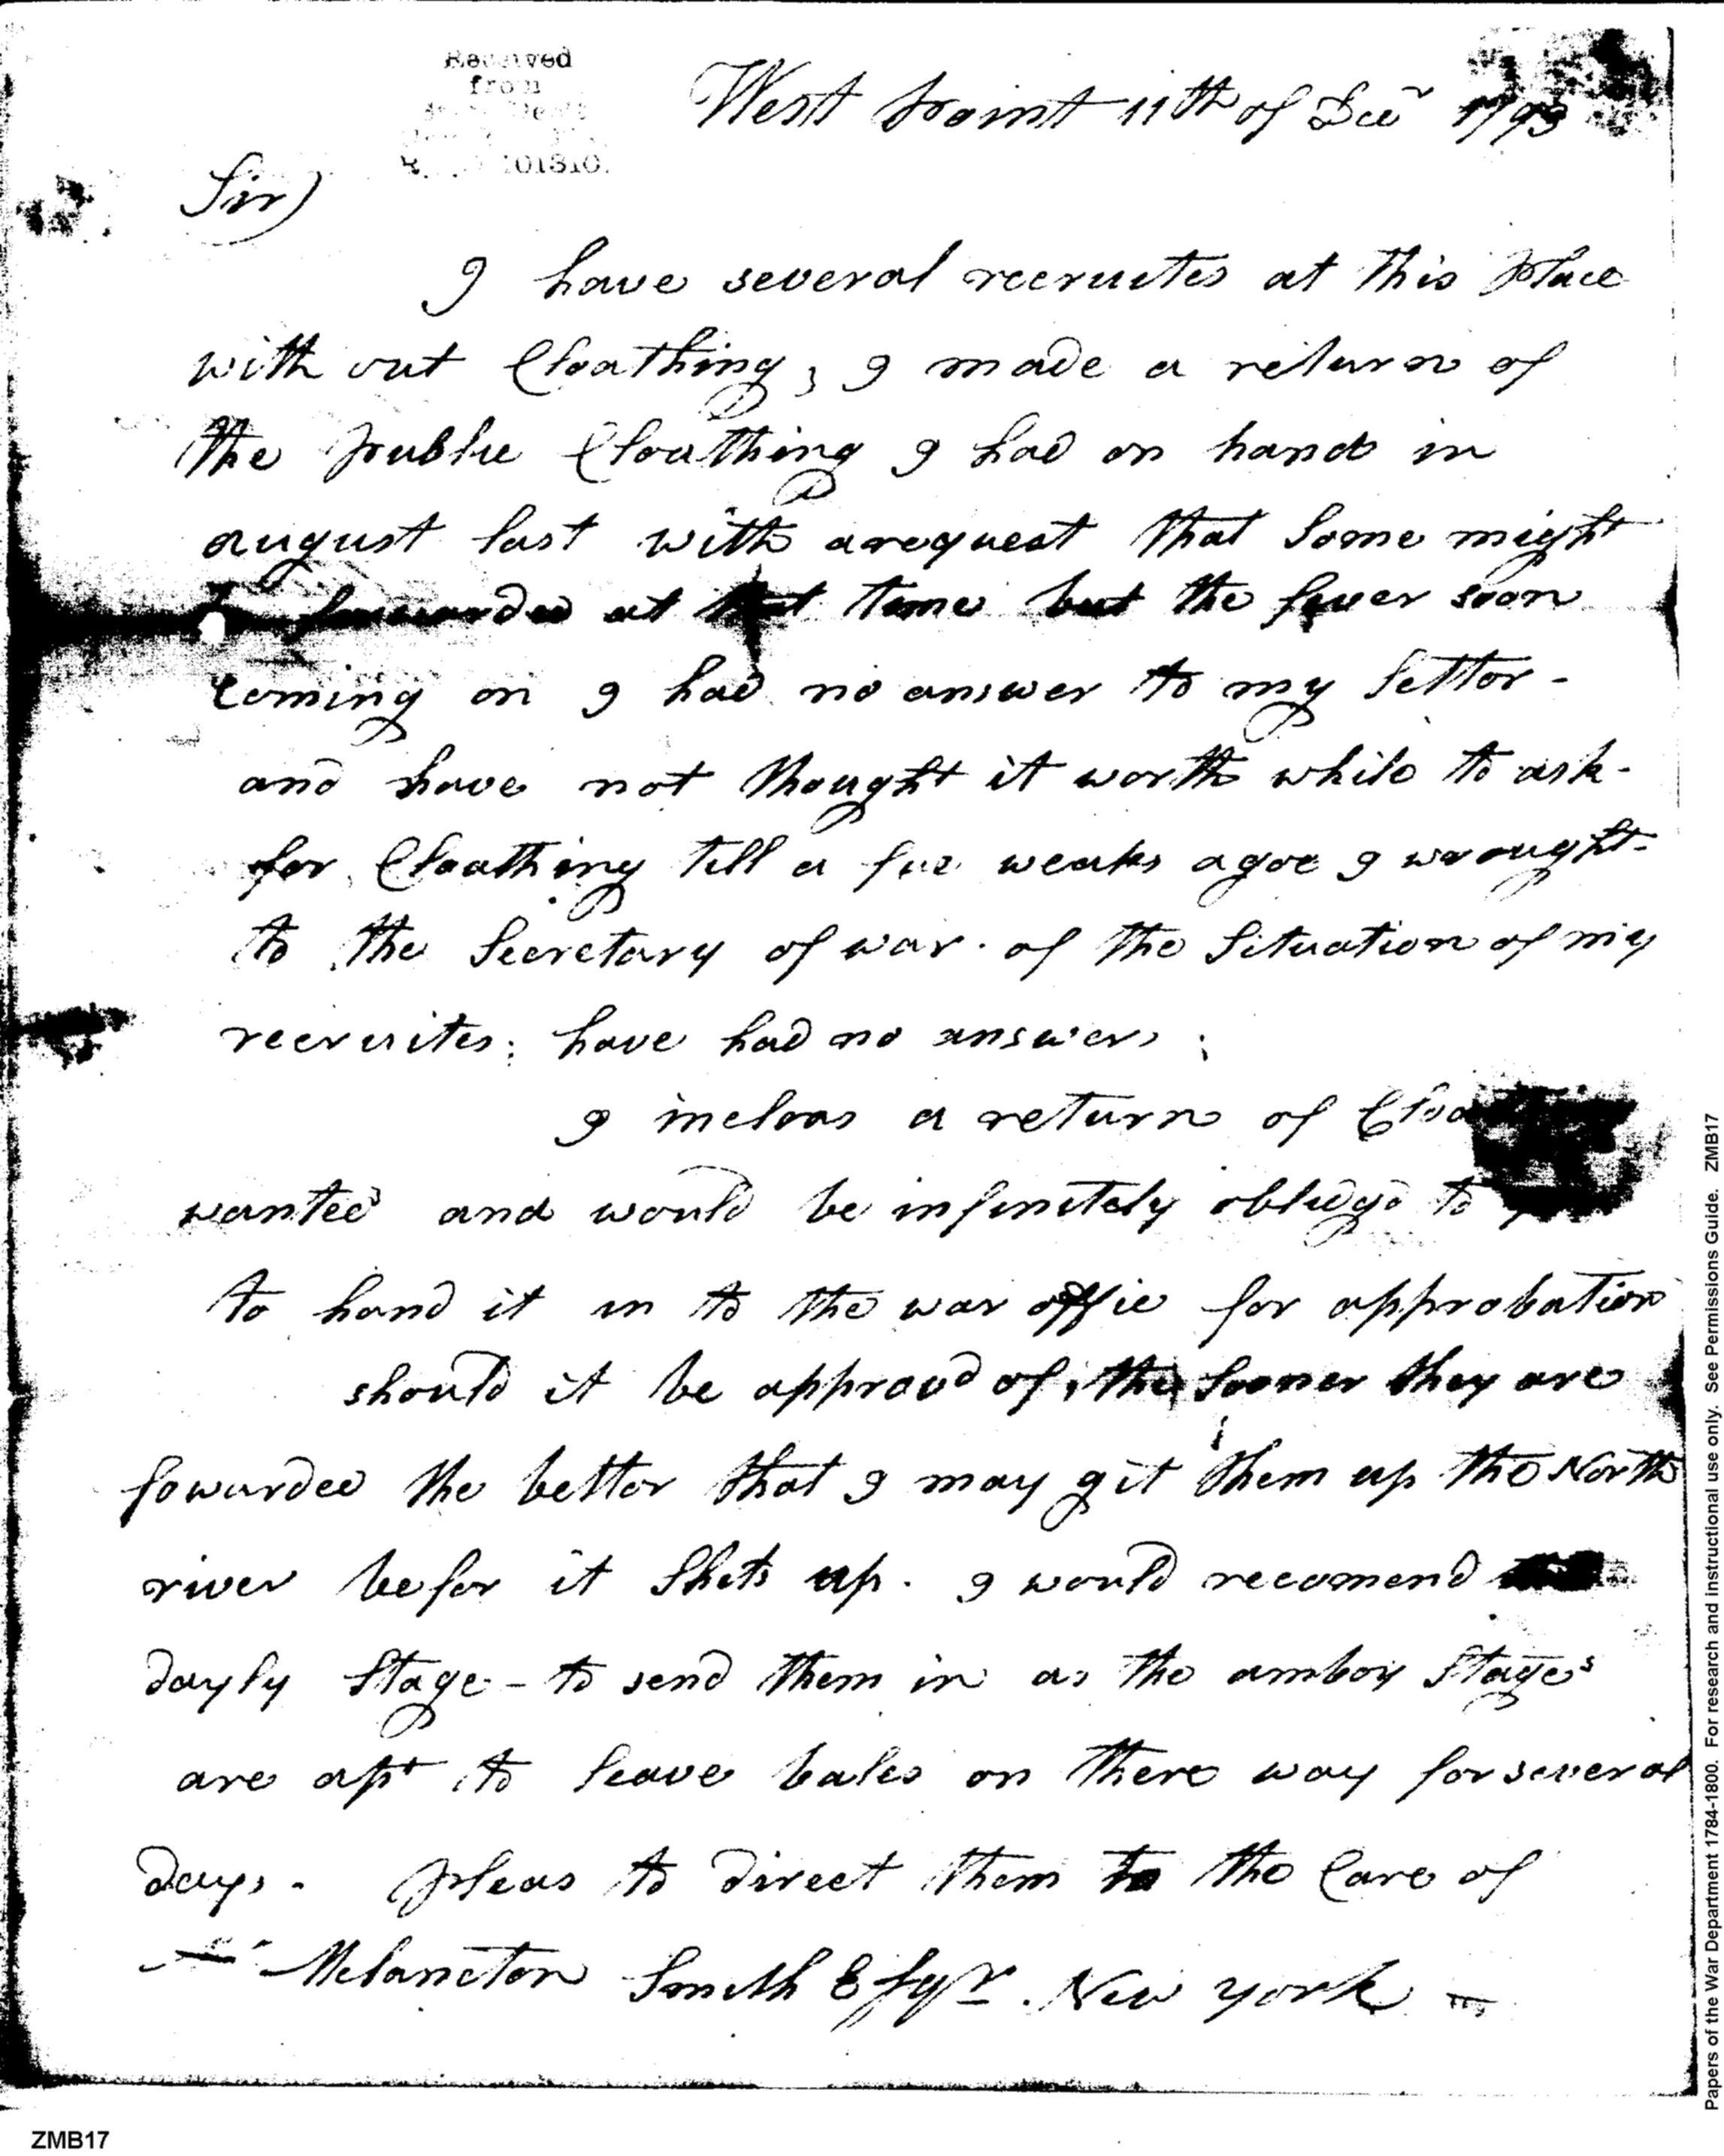 Received
from
101310.
West point 11th of Decr 1793
Sir)
I have several recruites at this place
with out Cloathing, I made a return of
the publue Cloathing I had on hand in
august last with arequest that Some might
forwarded at that time but the fever soon
Coming on I had no answer to my lettor -
and have not thought it worth while to ask-
for Cloathing till a fue weaks agoe I wrought-
to the Secretary of war. of the Situation of my
recruites; have had no answer;
I incloas a return of
wanted and would be infinitely obliegd to
to hand it in to the war offie for approbation
should it be approvd of, the Sooner they are
fowarded the bettor that I may git them up the North
river befor it Shets up. I would recomend
dayly Stage - to send them in as the amboy Stages
are apt to leave bales on there way forseveral
days. pleas to direct them to the Care of
Melancton Smith Esqr. New york
Papers of the War Department 1784-1800. For research and instructional use only. See Permissions Guide. ZMB17
ZMB17